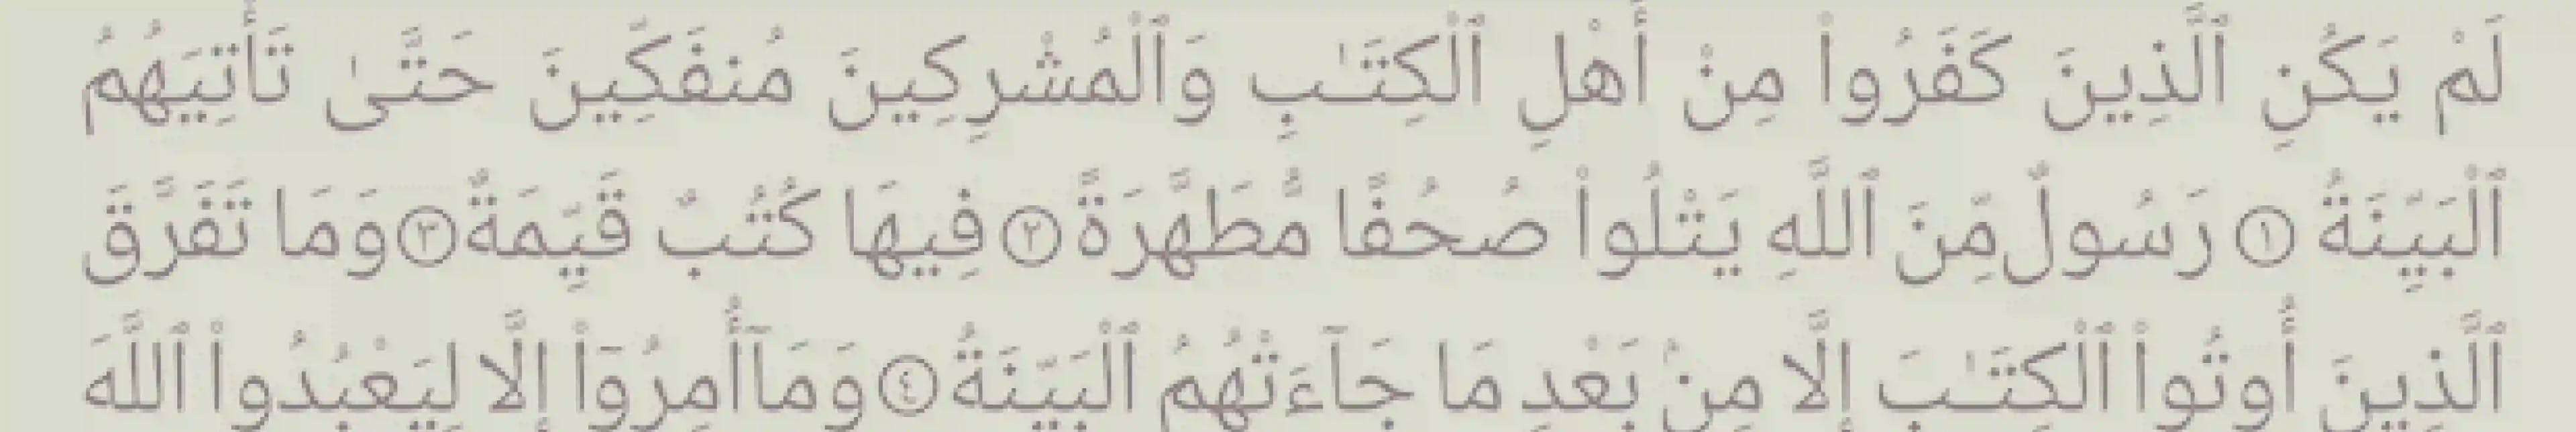 لَمْ يَكُنِ ٱلَّذِينَ كَفَرُوا۟ مِنْ أَهْلِ ٱلْكِتَـٰبِ وَٱلْمُشْرِكِينَ مُنفَكِّينَ حَتَّىٰ تَأْتِيَهُمُ
ٱلْبَيِّنَةُ ١ رَسُولٌ مِّنَ ٱللَّهِ يَتْلُوا۟ صُحُفًا مُّطَهَّرَةً ٢ فِيهَا كُتُبٌ قَيِّمَةٌ ٣ وَمَا تَفَرَّقَ
ٱلَّذِينَ أُوتُوا۟ ٱلْكِتَـٰبَ إِلَّا مِنۢ بَعْدِ مَا جَآءَتْهُمُ ٱلْبَيِّنَةُ ٤ وَمَآ أُمِرُوٓا۟ إِلَّا لِيَعْبُدُوا۟ ٱللَّهَ